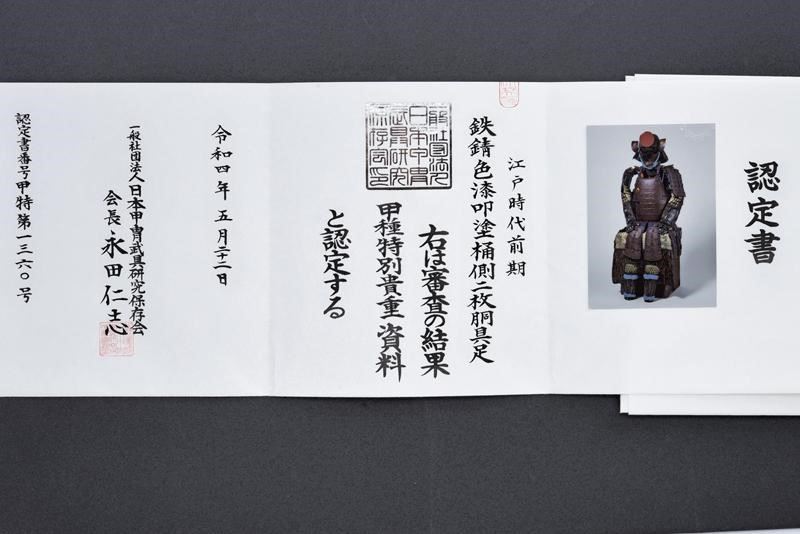 認定書
江戸時代前期
鉄錆色漆叩塗桶側二枚胴具足
右は審査の結果
甲種特別貴重資料
と認定する
一般社団法人
日本甲冑
武具研究
保存会印
令和四年五月二十二日
一般社団法人日本甲冑武具研究保存会
会長 永田仁志
認定書番号甲特第一三六〇号